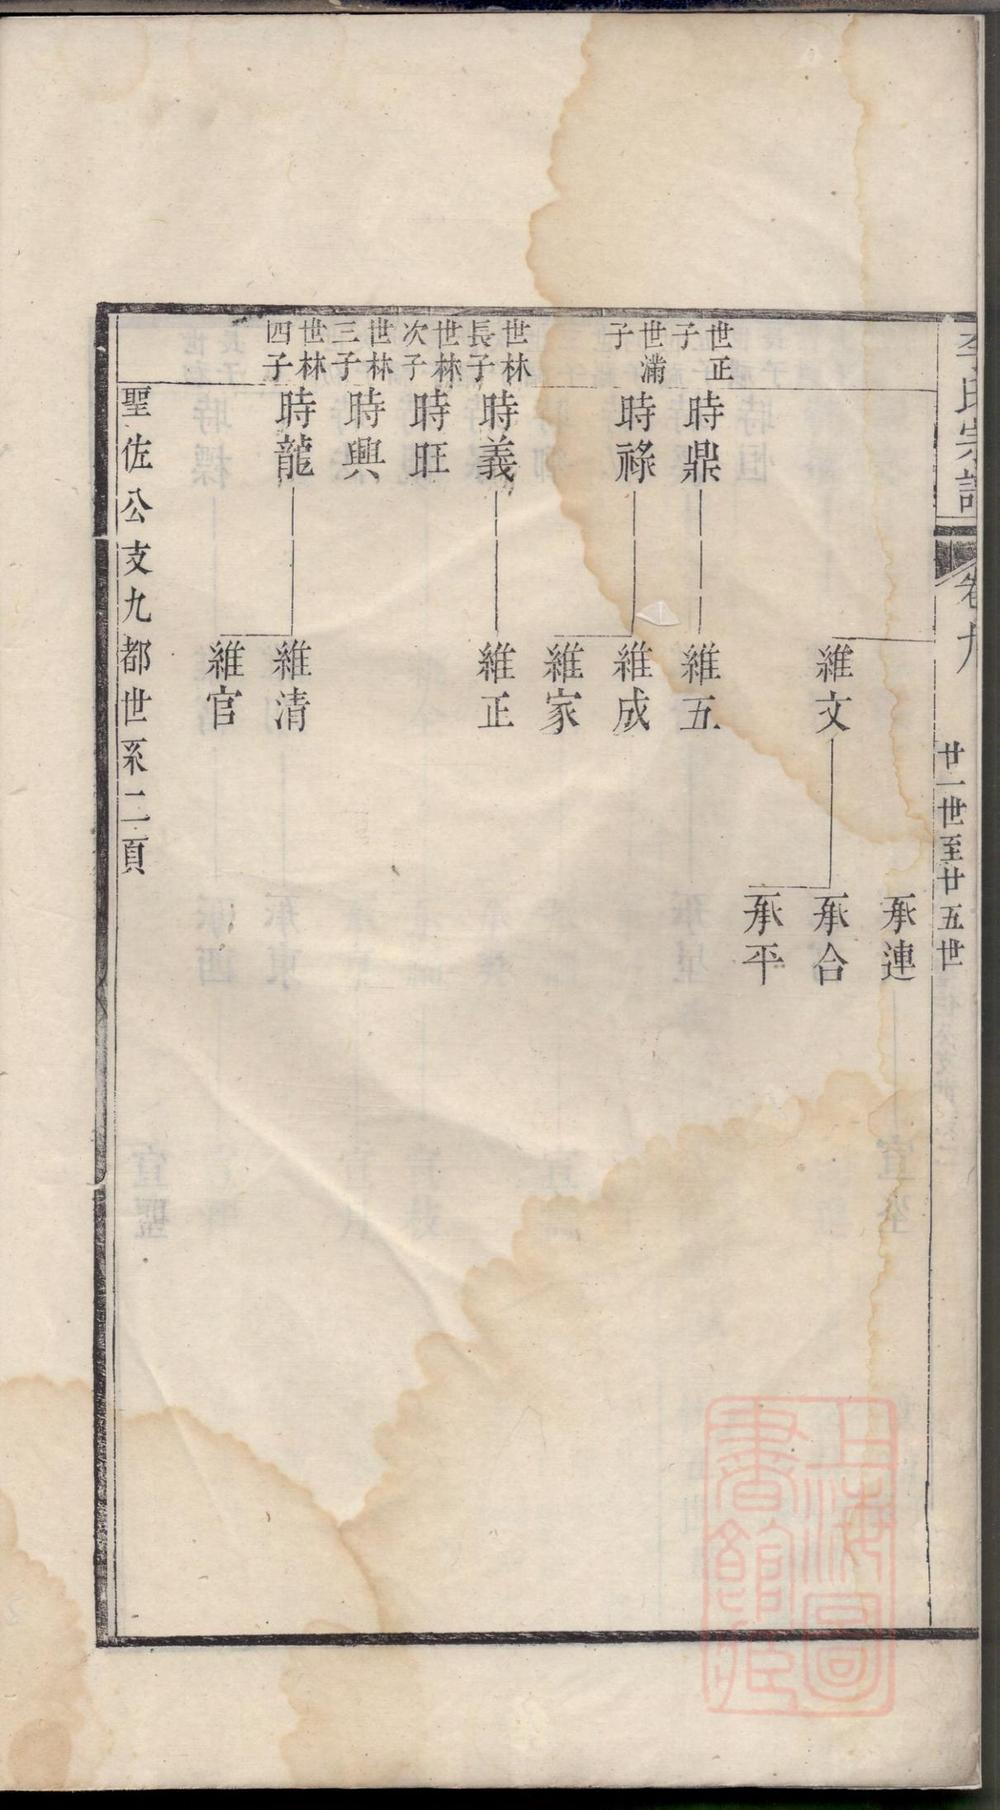 李氏宗譜
卷九
廿一世至廿五世
承連
維文
承合
承平
世正子
時鼎
維五
世滿子
時祿
維成
維家
世林長子
時義
維正
世林次子
時旺
世林三子
時興
世林四子
時龍
維清
維官
聖佐公支九都世系二頁
上海圖書館藏